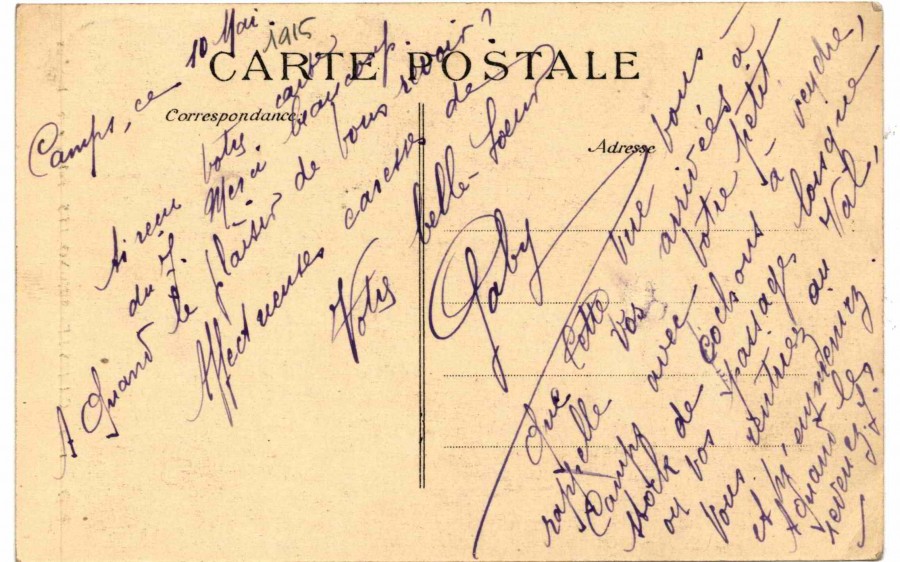 CARTE POSTALE
Correspondance
Adresse
Camps, ce 10 Mai 1915
Ai reçu votre carte
du 7. Merci beaucoup.
A Quand le plaisir de vous revoir?
Affectueuses caresses de
Votre belle-soeur
Gaby
Que cette vue vous
rappelle vos arrivées à
Camps avec votre petit
stock de cochons à vendre,
ou vos passages lorsque
vous rentriez au Val,
et
A quand les
revenez-y?